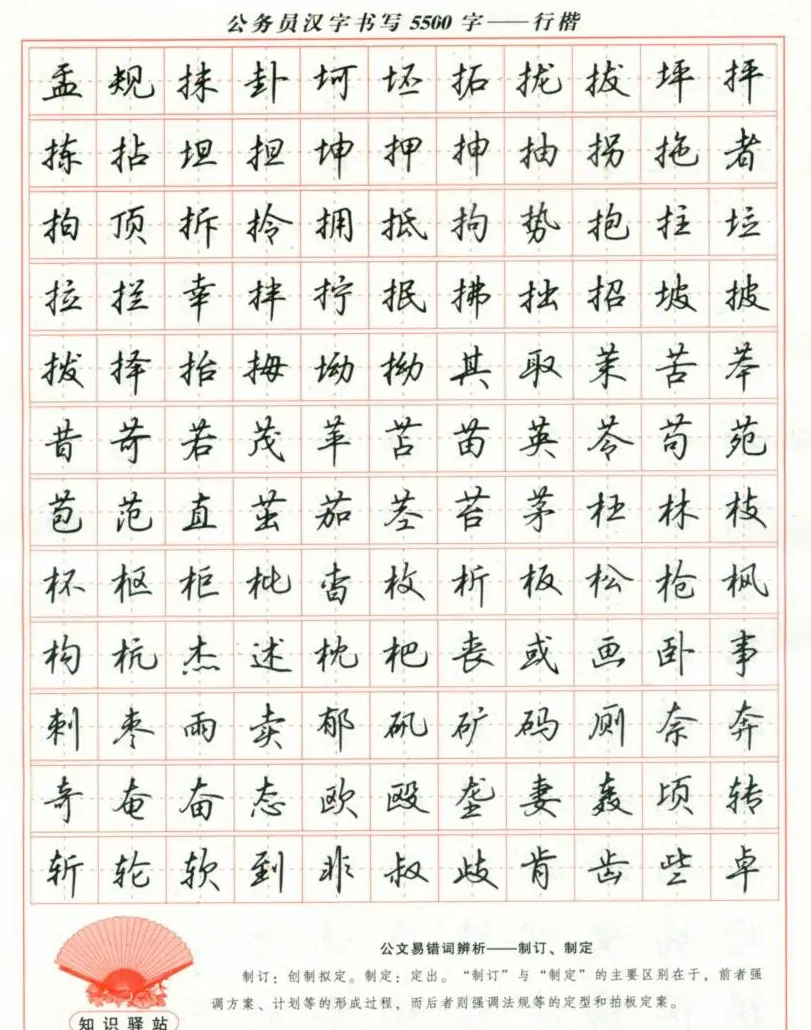 公务员汉字书写5500字——行楷
盂规抹卦坷坯拓拢拔坪抨
拣拈坦担坤押抻抽拐拖者
拍顶拆拎拥抵拘势抱拄垃
拉拦幸拌拧抿拂拙招坡披
拨择抬拇坳拗其取茉苦苯
昔苛若茂苹苫苗英苓苟苑
苞范直茁茄茎苔茅枉林枝
杯枢柜枇杳枚析板松枪枫
构杭杰述枕杷丧或画卧事
刺枣雨卖郁矾矿码厕奈奔
奇奄奋态欧殴垄妻轰顷转
斩轮软到非叔歧肯齿些卓
公文易错词辨析——制订、制定
制订：创制拟定。制定：定出。“制订”与“制定”的主要区别在于，前者强
调方案、计划等的形成过程，而后者则强调法规等的定型和拍板定案。
知识驿站